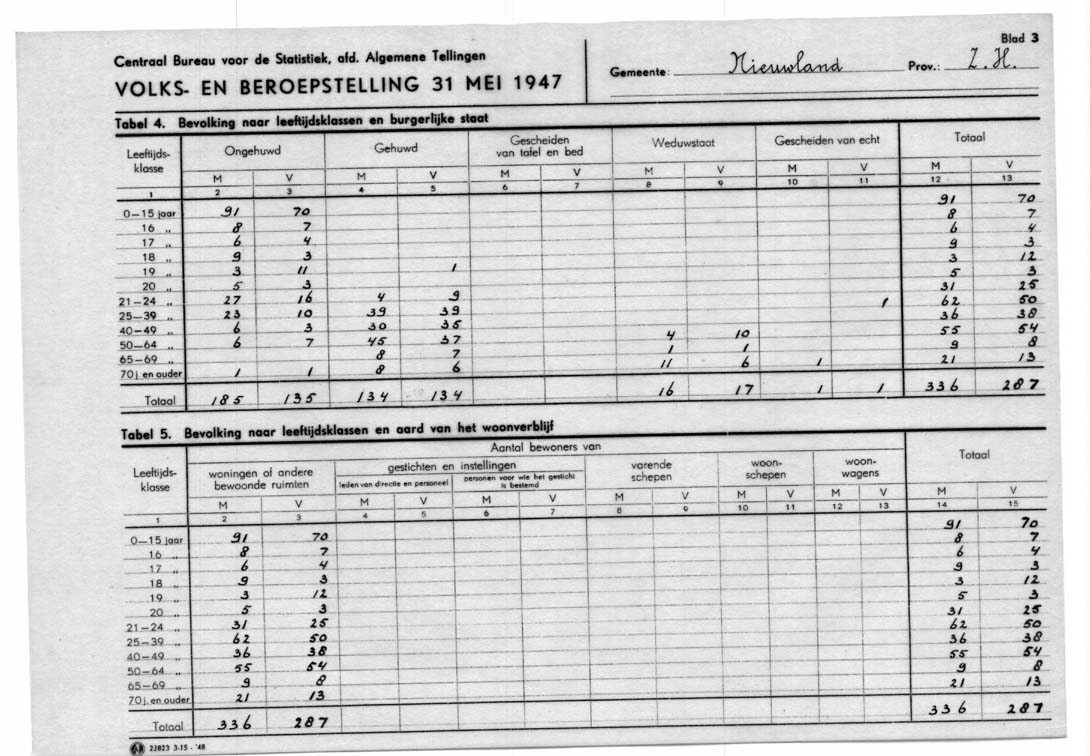 Blad 3
Centraal Bureau voor de Statistiek, afd. Algemene Tellingen
VOLKS- EN BEROEPSTELLING 31 MEI 1947
Gemeente: Nieuwland Prov.: Z.H.
Tabel 4. Bevolking naar leeftijdsklassen en burgerlijke staat
Leeftijds-klasse Ongehuwd Gehuwd Gescheiden van tafel en bed Weduwstaat Gescheiden van echt Totaal
M V M V M V M V M V M V
1 2 3 4 5 6 7 8 9 10 11 12 13
0—15 jaar 91 70 91 70
16 „ 8 7 8 7
17 „ 6 4 6 4
18 „ 9 3 9 3
19 „ 3 11 1 3 12
20 „ 5 3 5 3
21—24 „ 27 16 4 9 31 25
25—39 „ 23 10 39 39 1 62 50
40—49 „ 6 3 30 35 36 38
50—64 „ 6 7 45 37 4 10 55 54
65—69 „ 8 7 1 1 9 8
70 j. en ouder 1 1 8 6 11 6 1 21 13
Totaal 185 135 134 134 16 17 1 1 336 287
Tabel 5. Bevolking naar leeftijdsklassen en aard van het woonverblijf
Leeftijds-klasse Aantal bewoners van Totaal
woningen of andere bewoonde ruimten gestichten en instellingen varende schepen woon-schepen woon-wagens
leden van directie en personeel personen voor wie het gesticht is bestemd
M V M V M V M V M V M V M V
1 2 3 4 5 6 7 8 9 10 11 12 13 14 15
0—15 jaar 91 70 91 70
16 „ 8 7 8 7
17 „ 6 4 6 4
18 „ 9 3 9 3
19 „ 3 12 3 12
20 „ 5 3 5 3
21—24 „ 31 25 31 25
25—39 „ 62 50 62 50
40—49 „ 36 38 36 38
50—64 „ 55 54 55 54
65—69 „ 9 8 9 8
70 j. en ouder 21 13 21 13
Totaal 336 287 336 287
22823 3-15 - '48